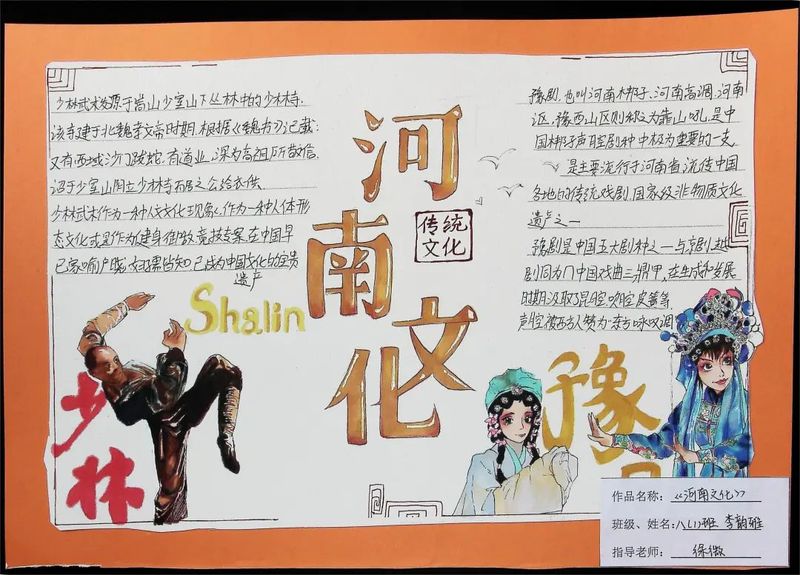 少林武术发源于嵩山少室山下丛林中的少林寺.
该寺建于北魏孝文帝时期.根据《魏书》记载:
又有西域沙门跋陀,有道业,深为高祖所敬信.
诏于少室山阴立少林寺而居之公给衣供.
少林武术作为一种人文文化现象,作为一种人体形
态文化或是作为健身御敌竞技专案,在中国早
已家喻户晓 妇孺皆知 已成为中国文化的宝贵
遗产
Shalin
少林
河南文化
传统
文化
豫剧,也叫河南梆子、河南高调.河南
区,豫西山区则称为靠山吼,是中
国梆子声腔剧种中极为重要的一支,
是主要流行于河南省,流传中国
各地的传统戏剧,国家级非物质文化
遗产之一
豫剧是中国五大剧种之一与京剧、越
剧同为中国戏曲三鼎甲,在生成和发展
时期汲取了昆腔 皮簧等
声腔 被西方人赞为"东方咏叹调
豫
作品名称: 《河南文化》
班级、姓名:八(1)班 李韵雅
指导老师: 徐微